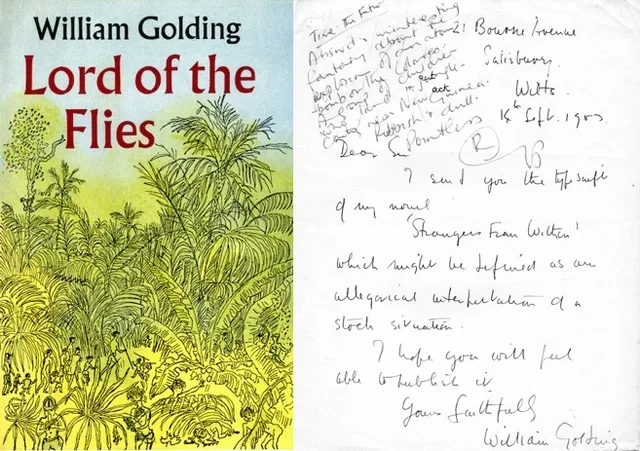 William Golding
Lord of the
Flies
Time the Future
Absurd & uninteresting
fantasy about the
explosion of an atom
bomb on the
Colonies. A group of
children who land in
jungle-
country near New Guinea.
Rubbish & dull.
Pointless
R
21 Bourne Avenue
Salisbury.
Wilts.
14th Sept. 1953.
Dear Sir
I send you the typescript
of my novel
'Strangers From Within'
which might be defined as an
allegorical interpretation of a
stock situation.
I hope you will feel
able to publish it
Yours faithfully
William Golding